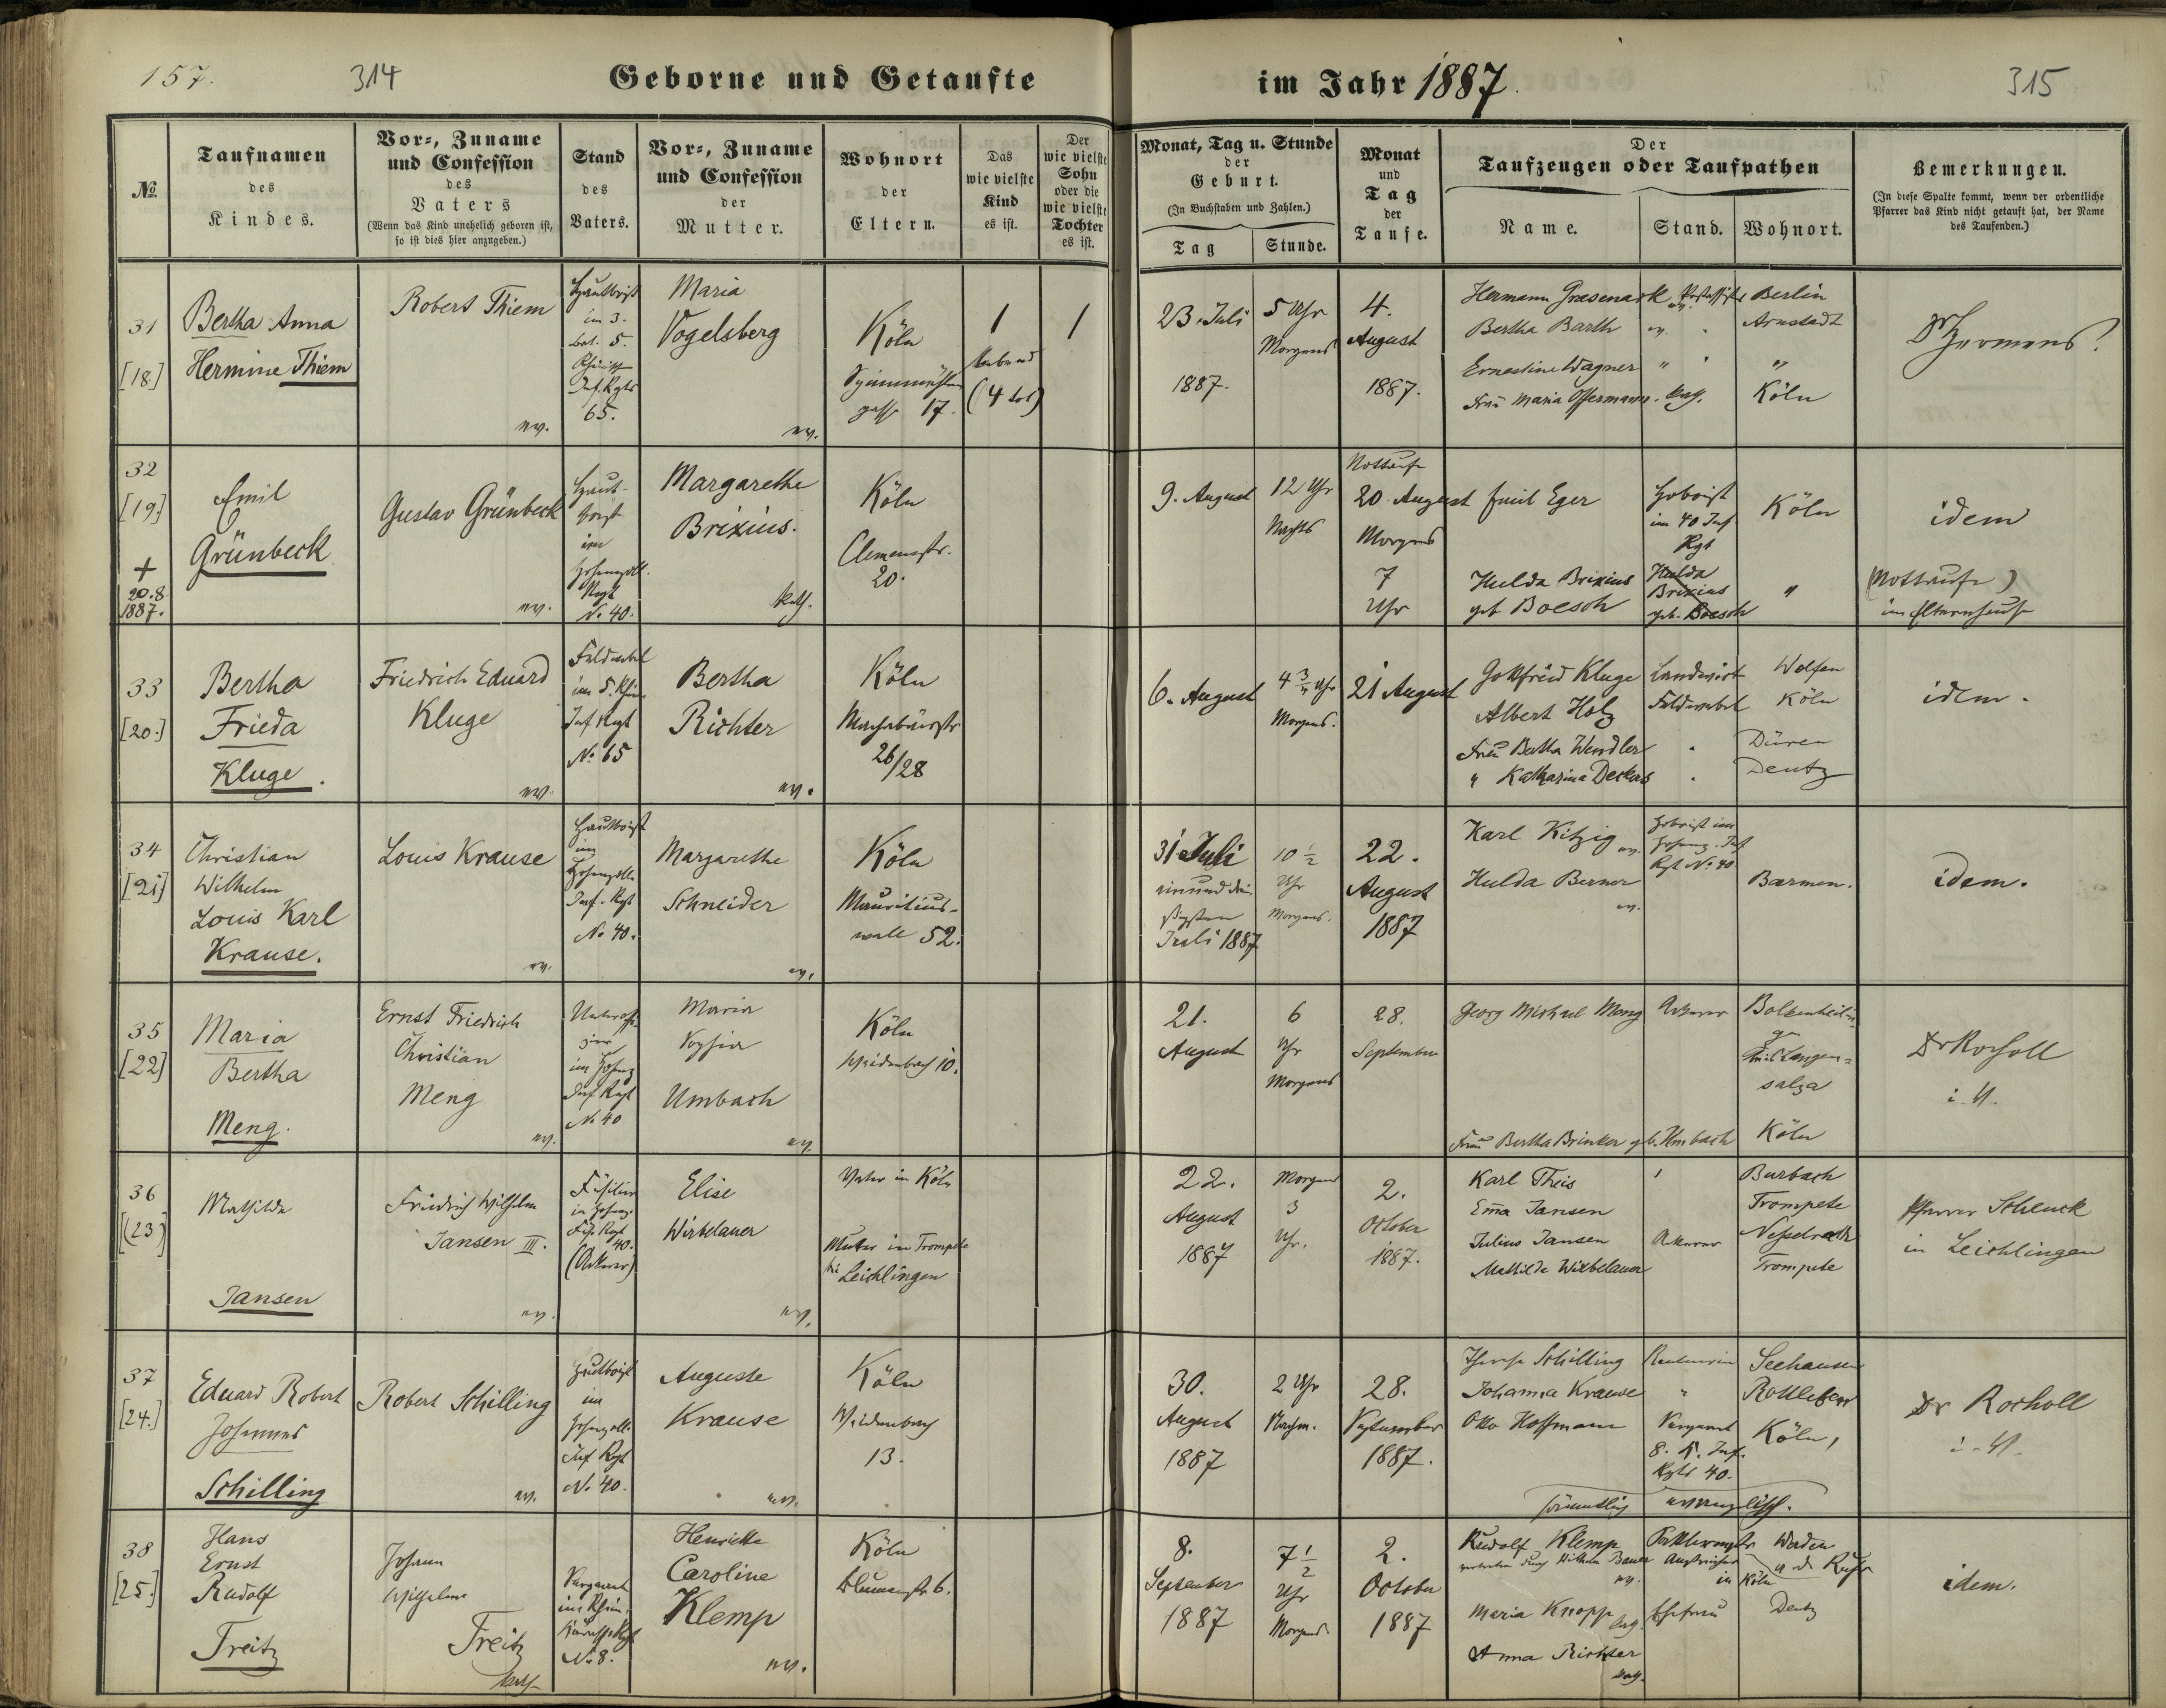 157.
314
Geborne und Getaufte
im Jahr 1887.
315
№.
Taufnamen
des
Kindes.
Vor-, Zuname
und Confession
des
Vaters
(Wenn das Kind unehelich geboren ist,
so ist dies hier anzugeben.)
Stand
des
Vaters.
Vor-, Zuname
und Confession
der
Mutter.
Wohnort
der
Eltern.
Das
wie vielste
Kind
es ist.
Der
wie vielste
Sohn
oder die
wie vielste
Tochter
es ist.
Monat, Tag u. Stunde
der
Geburt.
(In Buchstaben und Zahlen.)
Tag
Stunde.
Monat
und
Tag
der
Taufe.
Der
Taufzeugen oder Taufpathen
Name.
Stand.
Wohnort.
Bemerkungen.
(In diese Spalte kommt, wenn der ordentliche
Pfarrer das Kind nicht getauft hat, der Name
des Taufenden.)
31
[18]
Bertha Anna
Hermine Thiem
Robert Thiem
ev.
Hautboist
im 3.
Bat. 5.
Rheinisch
Inf. Rgts
65.
Maria
Vogelsberg
ev.
Köln
gasse 17.
1
(4 tot)
1
23. Juli
1887.
5 Uhr
Morgens
4.
August
1887.
Hermann Grasenack
Berlin
Bertha Barth
Arnstadt
Ernestine Wagner
"
Frau Maria Offermann. kath.
Köln
32
[19]
+
20.8.
1887.
Emil
Grünbeck
Gustav Grünbeck
ev.
Haut-
boist
im
Hohenzoll.
Regt
No 40.
Margarethe
Brixius.
kath.
Köln
Clemensstr.
20.
9. August
12 Uhr
Nachts
Nottaufe
20. August
Morgens
7
Uhr
Emil Eger
Hoboist
im 40 Inf
Rgt
Köln
Hulda Brixius
geb Boesch
Hulda
Brixius
geb. Boesch
"
idem
(Nottaufe)
im Elternhause
33
[20.]
Bertha
Frieda
Kluge.
Friedrich Eduard
Kluge
ev.
Feldwebel
im 5. Rhein
Inf Regt
No 65
Bertha
Richter
ev.
Köln
26/28
6. August
4 3/4 Uhr
Morgens.
21 August
Gottfried Kluge
Landwirt
Wolfen
Albert Holz
Feldwebel
Köln
Frau Bertha Wendler
Düren
" Katharina Deckers
Deutz
idem.
34
[21]
Christian
Wilhelm
Louis Karl
Krause.
Louis Krause
ev.
Hautboist
im
Hohenzoll.
Inf. Rgt
No 40.
Margarethe
Schneider
ev.
Köln
Mauritius-
wall 52.
31 Juli
einund drei-
ßigsten
Juli 1887
10 1/2
Uhr
Morgens.
22.
August
1887
Karl Kitzig ev.
Hoboist im
Hohenz. Inf
Rgt No 40
Hulda Berner
ev.
Barmen.
idem.
35
[22]
Maria
Bertha
Meng.
Ernst Friedrich
Christian
Meng
ev.
Unteroffi-
zier
im Hohenz
Inf Regt
No 40
Maria
Sophia
Umbach
ev.
Köln
Weidenbach 10.
21.
August
6
Uhr
Morgens
28.
September
Georg Michael Meng
Ackerer
Langen-
salza
Frau Bertha Brinker geb. Umbach
Köln
Dr Rocholl
i. V.
36
(23)
Mathilde
Jansen
Friedrich Wilhelm
Jansen III.
ev.
Füsilier
im Hohenz.
Füs. Regt
40.
(Ackerer)
Elise
Wirbelauer
ev.
Vater in Köln
Mutter in Trompete
bei Leichlingen
22.
August
1887
Morgens
3
Uhr.
2.
October
1887.
Karl Theis
Burbach
Ema Jansen
Trompete
Julius Jansen
Ackerer
Nesselrath
Mathilde Wirbelauer
Trompete
Pfarrer Schenck
in Leichlingen
37
[24.]
Eduard Robert
Johannes
Schilling
Robert Schilling
ev.
Hautboist
im
Hohenzoll.
Inf Rgt
No 40.
Auguste
Krause
ev.
Köln
Weidenbach
13.
30.
August
1887
2 Uhr
Nachm.
28.
September
1887.
Therese Schilling
Rentnerin
Seehausen
Johanna Krause
"
Rottleben
Otto Hoffmann
Sergeant
8. K. Inf.
Rgts 40.
Köln,
sämmtlich evangelisch.
Dr Rocholl
i. V.
38
[25.]
Hans
Ernst
Rudolf
Treitz
Johann
Wilhelm
Treitz
kath
Sergeant
im Rhein.
Kürassr Regt
No 8.
Henriette
Caroline
Klemp
ev.
Köln
Blumenstr. 6.
8.
September
1887
7 1/2
Uhr
Morgens.
2.
October
1887
Rudolf Klemp
Werden
a. d. Ruhr
vertreten durch Wilhelm Bauer Anstreicher
ev.
in Köln
Maria Knopp kath.
Ehefrau
Deutz
Anna Richter
kath.
idem.